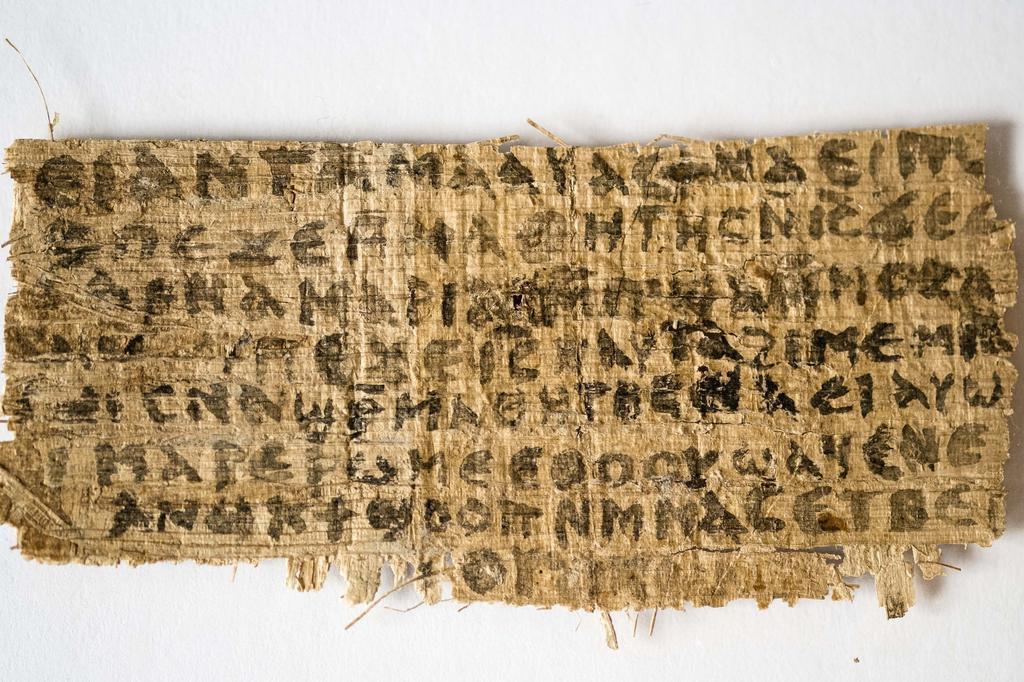 ⲉⲓ ⲁⲛ ⲧⲁⲙⲁⲁⲩ ⲁⲥϯ ⲛⲁⲉⲓ
ⲡⲉϫⲉ ⲙⲙⲁⲑⲏⲧⲏⲥ ⲛⲓ̅ⲥ̅ ϫⲉ ⲥ
ⲁⲣⲛⲁ ⲙⲁⲣⲓⲁⲙ ⲙⲡϣⲁ ⲙⲙⲟⲥ ⲁ
ⲡⲉϫⲉ ⲓ̅ⲥ̅ ⲛⲁⲩ ⲧⲁϩⲓⲙⲉ ⲙⲛ
ⲥⲛⲁϣⲣⲙⲁⲑⲏⲧⲏⲥ ⲛⲁⲉⲓ ⲁⲩⲱ
ⲓ ⲙⲁⲣⲉⲣⲱⲙⲉ ⲉⲑⲟⲟⲩ ϣⲁϥⲉ ⲛⲉ
ⲁⲛⲟⲕ ϯϣⲟⲟⲡ ⲛⲙⲙⲁⲥ ⲉⲧⲃⲉ